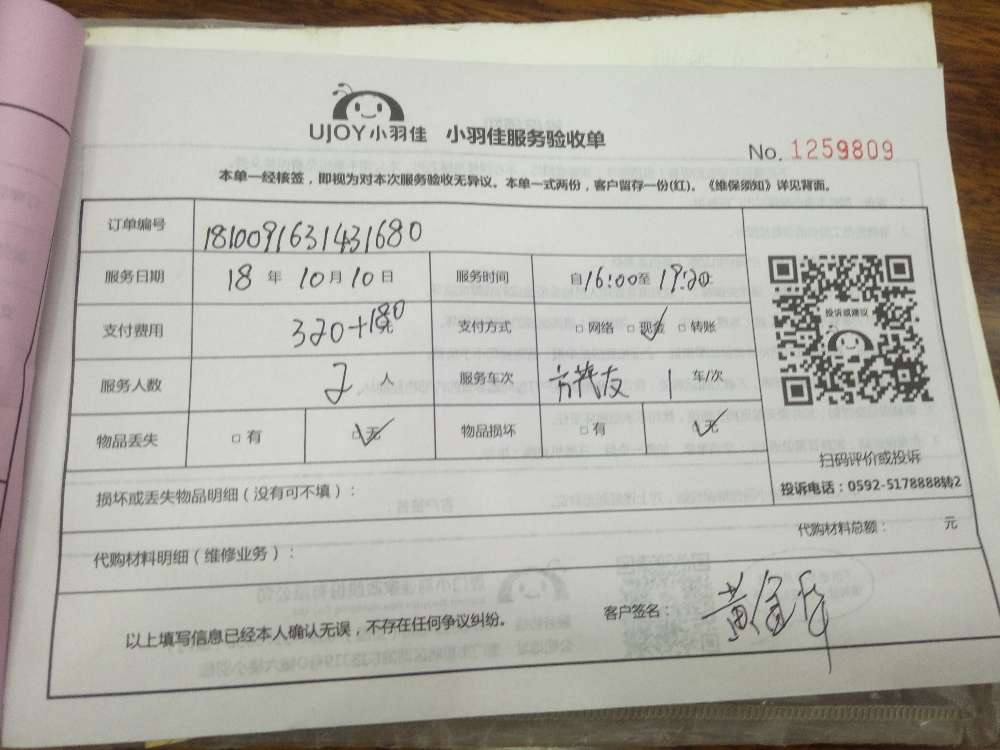 UJOY小羽佳 小羽佳服务验收单
No. 1259809
本单一经核签，即视为对本次服务验收无异议。本单一式两份，客户留存一份(红)。《维保须知》详见背面。
订单编号 1810091631431680
服务日期 18 年 10 月 10 日 服务时间 自16:00至19:20止
支付费用 320+180元 支付方式 □ 网络 □ 现金 □ 转账
服务人数 2 人 服务车次 1 车/次
物品丢失 □ 有 □ 无 物品损坏 □ 有 □ 无
投诉或建议
扫码评价或投诉
投诉电话：0592-5178888转2
损坏或丢失物品明细（没有可不填）：
代购材料明细（维修业务）： 代购材料总额： 元
以上填写信息已经本人确认无误，不存在任何争议纠纷。 客户签名：